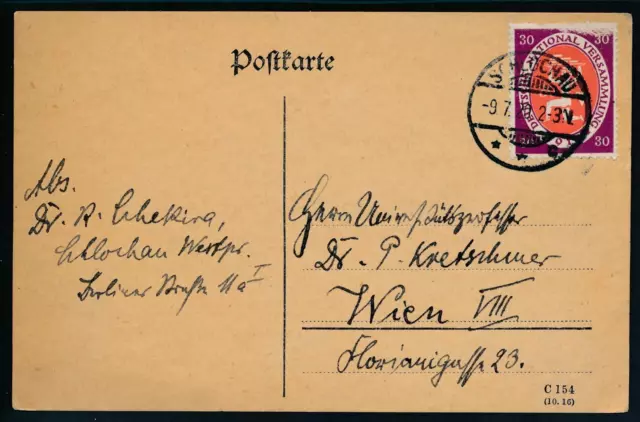 Postkarte
30 30
DEUTSCHE NATIONAL VERSAMMLUNG
30
SCHLOCHAU
-9.7. 2-3N.
Abs.
Dr. R.
Schlochau Westpr.
Berliner Straße 11a I
Herrn Univers.
Dr. P. Kretschmer
Wien VIII
Florianigasse 23.
C 154
(10. 16)